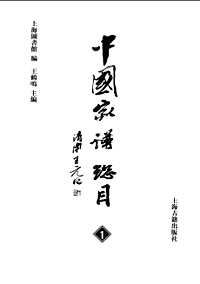 上海圖書館 編 王鶴鳴 主編
中國家譜總目
清園王元化
1
上海古籍出版社